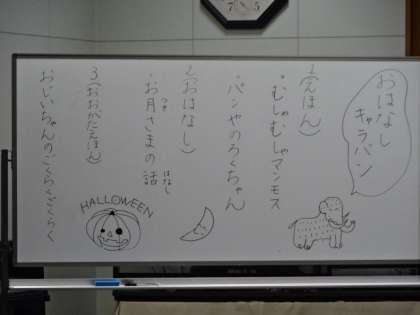 おはなし
キャラバン
1(えほん)
・むしゃむしゃマンモス
・パンやのろくちゃん
2(おはなし)
・お月さまの話
つき
はなし
3(おおがたえほん)
おじいちゃんのごくらくごくらく
HALLOWEEN
7 5